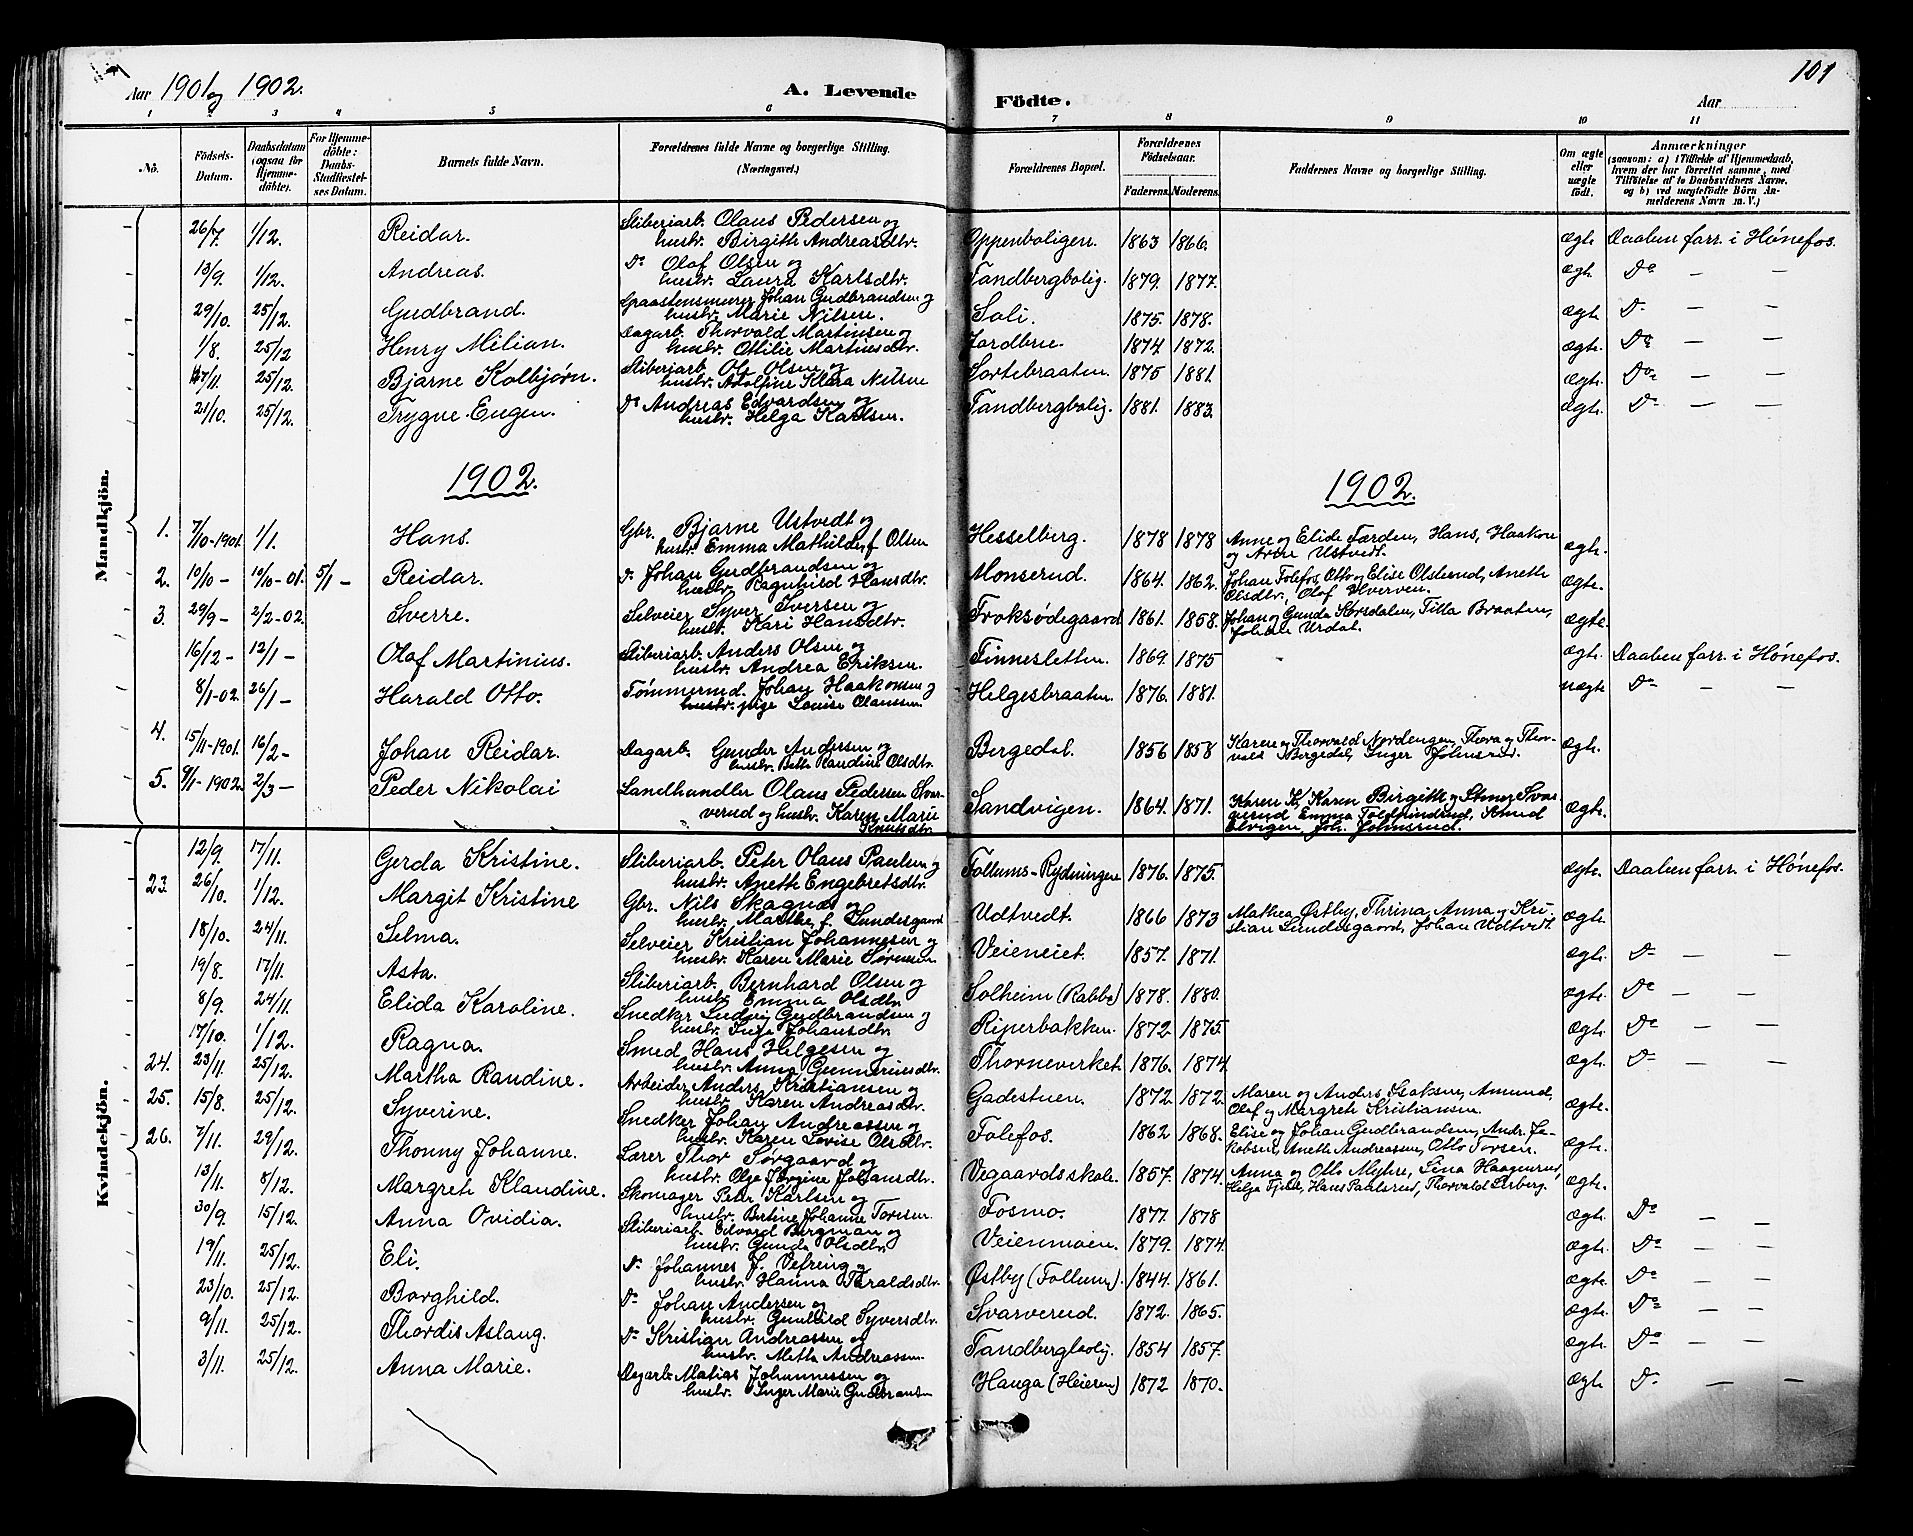 Aar 1901 og 1902. A. Levende Födte. Aar 101
1 2 3 4 5 6 7 8 9 10 11
No. Födsels-Datum. Daabsdatum (ogsaa for Hjemme-döbte). For Hjemme-döbte: Daabs-Stadfæstel-ses Datum. Barnets fulde Navn. Forældrenes fulde Navne og borgerlige Stilling. (Næringsvei.) Forældrenes Bopæl. Forældrenes Födselsaar. Faderens. Moderens. Faddernes Navne og borgerlige Stilling. Om ægte eller uægte födt. Anmærkninger (saasom: a) i Tilfælde af Hjemmedaab, hvem der har forrettet samme, med Tilföielse af to Daabsvidners Navne, og b) ved uægtefödte Börn An-melderens Navn m. V.)
Mandkjön.
26/7. 1/12. Reidar. Sliberiarb. Olaus Pedersen og hustr. Birgithe Andreasdtr. Oppenboligen. 1863 1866. ægte Daaben forr. i Hønefos.
13/9. 1/12. Andreas. Do Olaf Olsen og hustr. Laura Karlsdtr. Tandbergbolig. 1879. 1877. ægte Do — —
29/10. 25/12. Gudbrand. Graastensmurer Johan Gudbrandsen og hustr. Marie Nilsen. Soli. 1875. 1878. ægte Do — —
1/8. 25/12 Henry Milian. Dagarb. Thorvald Martinsen og hustr. Ottilie Martinsdtr. Jordbrue. 1874 1872. ægte. Do — —
17/11. 25/12. Bjarne Kolbjørn. Sliberiarb. Ole Olsen og hustr. Adolfine Klara Nilsen Sortebraaten. 1875 1881. ægte. Do — —
21/10. 25/12. Trygve Eugen. Do Andreas Edvardsen og hustr. Helga Karlsen. Tandbergbolig. 1881. 1883. ægte. Do — —
1902. 1902.
1. 7/10-1901. 1/1. Hans. Gbr. Bjarne Ustvedt og hustr. Emma Mathilde f. Olsen Hesselberg. 1878 1878 Anne og Elide Færden, Hans, Haakon og Arne Ustvedt. ægte.
2. 10/10 - 10/10-01. 5/1 - Reidar. Do Johan Gudbrandsen og hustr. Ragnhild Hansdtr. Monserud. 1864. 1862. Johan Tolefos, Otto og Elise Olslerud, Anethe Olsdtr., Olaf Ulverven. ægte.
3. 29/9 - 2/2-02. Sverre. Selveier Syver Iversen og hustr. Kari Hansdtr. Froksødegaard 1861. 1858. Johan og Gunda Korsdalen, Tilla Braaten, Urdal. ægte.
16/12 - 12/1 - Olaf Martinius. Sliberiarb. Anders Olsen og hustr. Andrea Eriksen Finnesletten. 1869. 1875 ægte. Daaben forr. i Hønefos.
8/1-02. 26/1 - Harald Otto. Tømmermd. Johan Haakonsen og hustr. pige Louise Olaussen. Helgesbraaten. 1876. 1881. uægte Do — —
4. 15/11-1901. 16/2 - Johan Reidar. Dagarb. Gunder Andersen og hustr. Bethe Randine Olsdtr. Bergedal. 1856 1858 Karen og Thorvald Nordengen, Thora og Thor-vald Bergedal, Inger Johnsrud. ægte.
5. 9/1-1902. 2/3 - Peder Nikolai Landhandler Olaus Pedersen Svar-verud og hustr. Karen Marie Knutsdtr. Sandvigen. 1864. 1871. Karen K. Karen Birgithe og Svar-verud Emma Knud Elvigen, Joh. Johnsrud. ægte.
Kvindekjön.
12/9. 17/11. Gerda Kristine. Sliberiarb. Peter Olaus Paulsen og hustr. Anethe Engebretsdtr. Follums-Rydningen 1876. 1875. ægte. Daaben forr. i Hønefos.
23. 26/10. 1/12. Margit Kristine Gbr. Nils Skagnæs og hustr. Marthe f. Lundesgaard Udtvedt. 1866 1873 Mathea Østby, Thrina, Anna og Kri-stian Lundesgaard, Johan Udtvedt. ægte.
18/10. 24/11. Selma. Selveier Kristian Johannesen og hustr. Karen Marie Sørensen Veieneiet. 1857. 1871. ægte. Do — —
19/8. 17/11. Asta. Sliberiarb. Bernhard Olsen og hustr. Emma Olsdtr. Solheim (Rabba) 1878. 1880. ægte. Do — —
8/9. 24/11. Elida Karoline. Snedker Ludvig Gudbrandsen og hustr. Inga Johansdtr. Riperbakken. 1872. 1875 ægte. Do — —
17/10. 1/12. Ragna. Smed Hans Helgesen og hustr. Anna Gunneriusdtr. Thorneverket. 1876. 1874. ægte. Do — —
24. 23/11. 25/12. Martha Randine. Arbeider Anders Kristiansen og hustr. Karen Andreasdtr. Gadestuen. 1872. 1872. Maren og Anders Isaksen, Amund, Olaf og Margrete Kristiansen. ægte.
25. 15/8. 25/12. Syverine. Snedker Johan Andreassen og hustr. Karen Lovise Olsdtr. Tolefos. 1862 1868. Elise og Johan Gudbrandsen, Andr. Ja-kobsen, Anethe Andreassen, Otto Torsen. ægte.
26. 7/11. 29/12. Thonny Johanne. Lærer Thor Sørgaard og hustr. Olga Jørgine Johansdtr. Vegaardsskole. 1857. 1874. Anna og Otto Myhre, Lina Haagenrud, Helga Tjelde, Hans Paalsrud, Thorvald Lerberg. ægte.
13/11. 8/12. Margrete Klaudine. Skomager Peder Karlsen og hustr. Bertine Johanne Toresen. Fosmo. 1877. 1878 ægte. Do — —
30/9. 15/12. Anna Ovidia. Sliberiarb. Edvard Bergman og hustr. Gunda Olsdtr. Veienmoen. 1879. 1874. ægte. Do — —
19/11. 25/12. Eli. Do Johannes J. Vefring og hustr. Hanna Taraldsdtr. Østby (Follum). 1844. 1861. ægte. Do — —
23/10. 25/12. Borghild. Do Johan Andersen og hustr. Gunhild Syversdtr. Svarverud. 1872. 1865. ægte. Do — —
9/11. 25/12. Thordis Aslaug. Do Kristian Andreassen og hustr. Methe Andreassen Tandbergbolig. 1854 1857. ægte. Do — —
3/11. 25/12. Anna Marie. Dagarb. Matias Johannessen og hustr. Inger Marie Gudbrandsen Hauga (Heieren) 1872 1870. ægte. Do — —